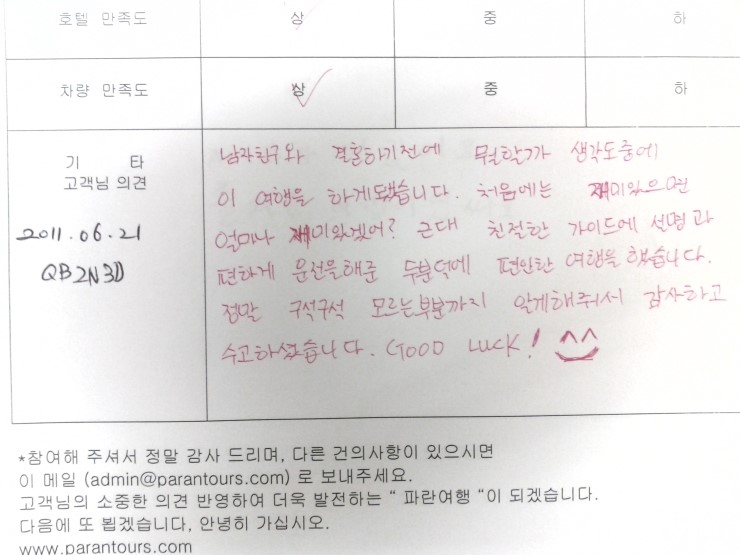 호텔 만족도 상 중 하
차량 만족도 상 중 하
기 타
고객님 의견
2011.06.21
QB2N3D
남자친구와 결혼하기전에 뭘할가 생각도중에
이 여행을 하게됐습니다. 처음에는 재미있으면
얼마나 재미있겠어? 근대 친절한 가이드에 설명과
편하게 운전을해준 두분덕에 편안한 여행을 했습니다.
정말 구석구석 모르는부분까지 알게해줘서 감사하고
수고하셨습니다. GOOD LUCK! ^^
*참여해 주셔서 정말 감사 드리며, 다른 건의사항이 있으시면
이 메일 (admin@parantours.com) 로 보내주세요.
고객님의 소중한 의견 반영하여 더욱 발전하는 “ 파란여행 “이 되겠습니다.
다음에 또 뵙겠습니다, 안녕히 가십시오.
www.parantours.com